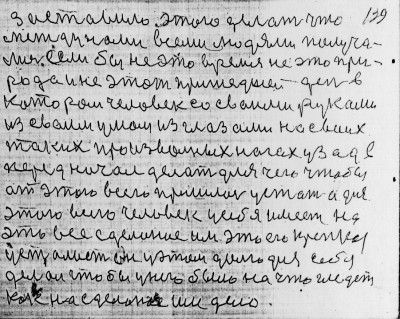 заставило этого делат что 139
между нами всеми людями получа-
лис. Если бы не это время не это при-
рода и не этот пришедшей ден в
котором человек со своими руками
из своим умом из глазами на своих
таких произвошых ногах из зад в
перед начал делат для чего чтобы
от этого всего пришлос устат а для
этого всего человек у себя имеет на
это все сделаное им это его крепко
устал он у этом деле для себя
делал чтобы у него было на что глядет
как на сделаное им дело.